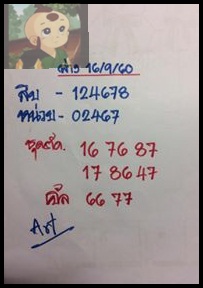 งวด 16/9/60
สิบ - 124678
หน่วย - 02467
ชุดตัด. 16 76 87
17 86 47
เบิ้ล 66 77
Art